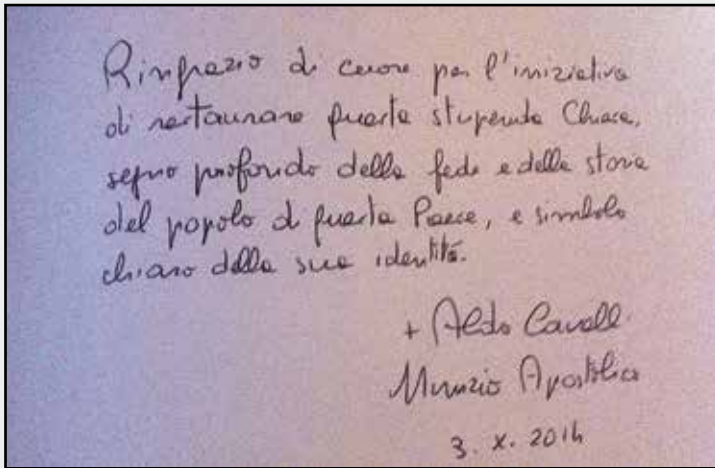 Ringrazio di cuore per l'iniziativa
di restaurare questa stupenda Chiesa,
segno profondo della fede e della storia
del popolo di questo Paese, e simbolo
chiaro della sua identità.
+ Aldo Cavalli
Nunzio Apostolico
3. X. 2014